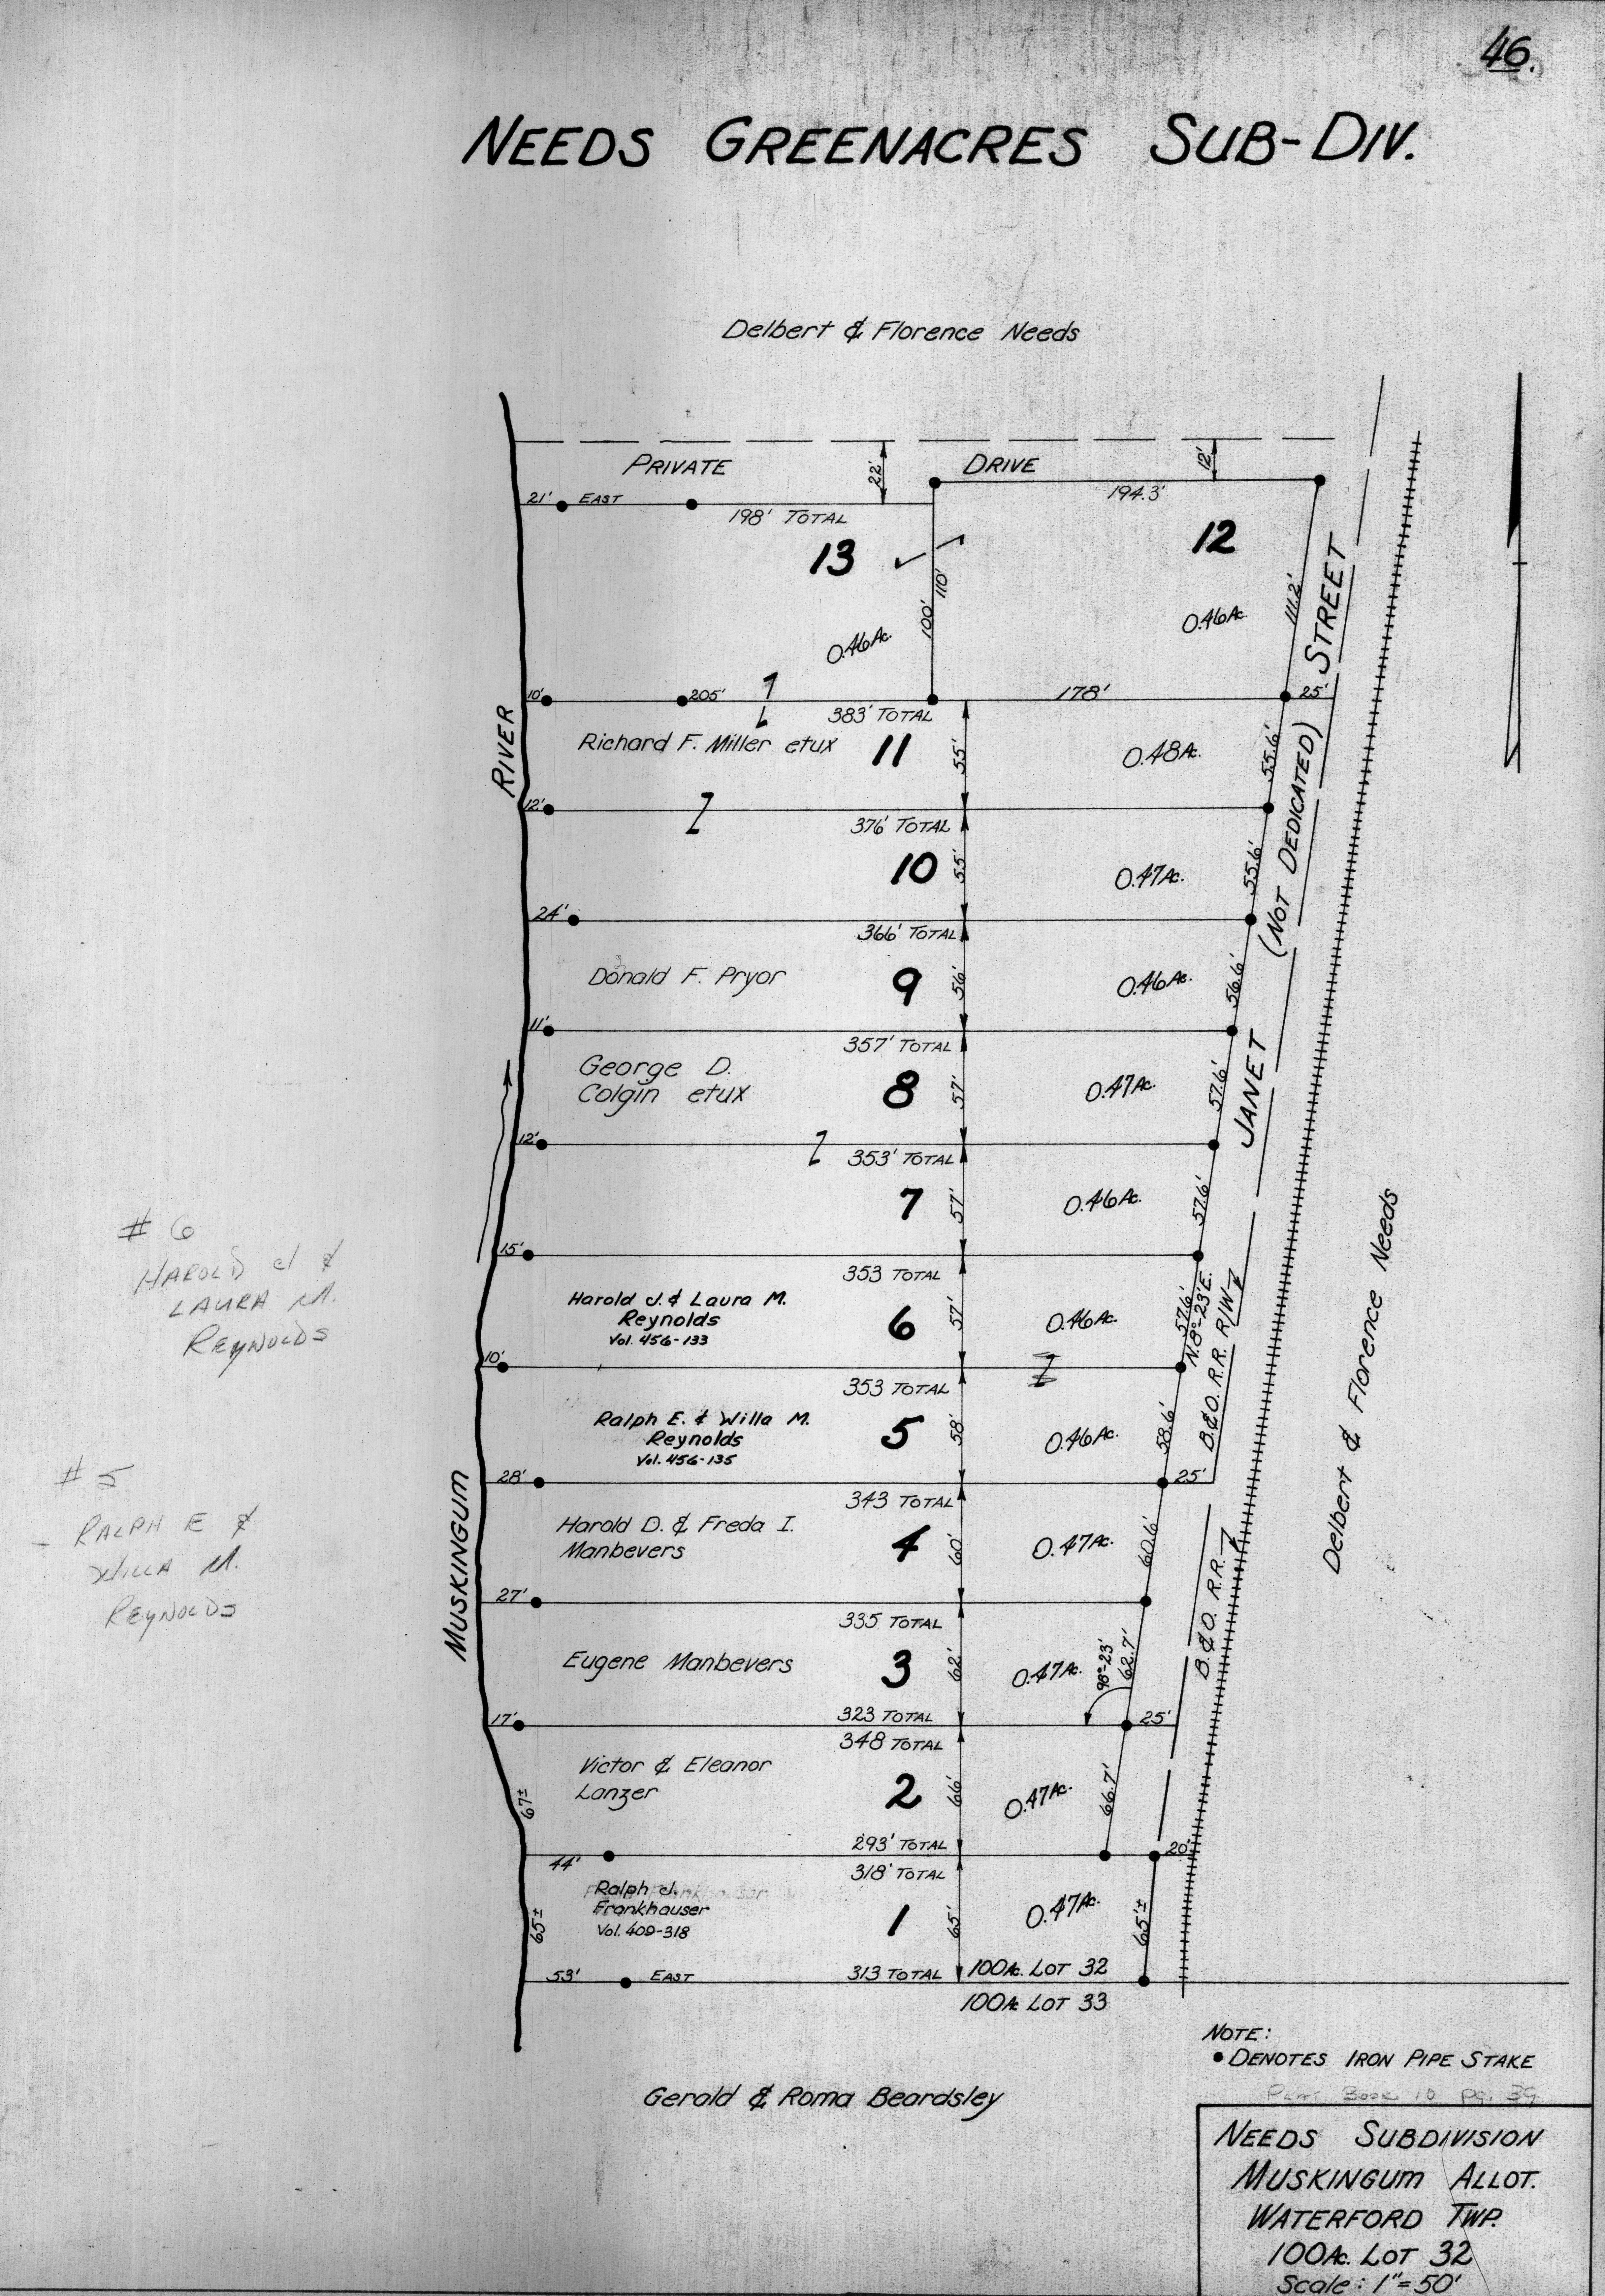 46.
NEEDS GREENACRES SUB-DIV.
Delbert & Florence Needs
PRIVATE DRIVE
22'
12'
21' EAST
198' TOTAL
194.3'
13
12
100'
110'
111.2'
0.46 Ac.
0.46 Ac.
STREET
10'
205'
178'
25'
383' TOTAL
Richard F. Miller etux
11
55'
0.48 Ac.
55.6'
RIVER
12'
376' TOTAL
10
55'
0.47 Ac.
55.6'
(NOT DEDICATED)
24'
366' TOTAL
Donald F. Pryor
9
56'
0.46 Ac.
56.6'
11'
357' TOTAL
George D.
Colgin etux
8
57'
0.47 Ac.
57.6'
JANET
12'
353' TOTAL
7
57'
0.46 Ac.
57.6'
15'
353 TOTAL
# 6
HAROLD J &
LAURA M.
REYNOLDS
Harold J. & Laura M.
Reynolds
Vol. 456-133
6
57'
0.46 Ac.
57.6'
N.8°-23'E.
B.&O. R.R. R/W
Delbert & Florence Needs
10'
353 TOTAL
Ralph E. & Willa M.
Reynolds
Vol. 456-135
5
58'
0.46 Ac.
58.6'
# 5
RALPH E &
WILLA M.
REYNOLDS
MUSKINGUM
28'
25'
343 TOTAL
Harold D. & Freda I.
Manbevers
4
60'
0.47 Ac.
60.6'
B.&O. R.R.
27'
335 TOTAL
Eugene Manbevers
3
62'
0.47 Ac.
98°-23'
62.7'
323 TOTAL
17'
25'
348 TOTAL
Victor & Eleanor
Lanzer
2
66'
0.47 Ac.
66.7'
67±
293' TOTAL
44'
20'
318' TOTAL
Ralph J.
Frankhauser
Vol. 409-318
1
65'
0.47 Ac.
65±
65'±
53' EAST
313 TOTAL
100 Ac. LOT 32
100 Ac. LOT 33
NOTE:
• DENOTES IRON PIPE STAKE
Plat Book 10 pg. 39
Gerald & Roma Beardsley
NEEDS SUBDIVISION
MUSKINGUM ALLOT.
WATERFORD TWP.
100 Ac. LOT 32
Scale: 1"=50'